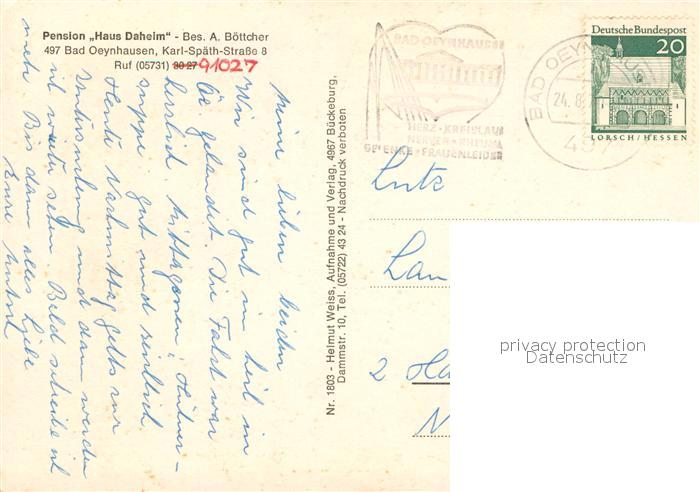 Pension „Haus Daheim" - Bes. A. Böttcher
497 Bad Oeynhausen, Karl-Späth-Straße 8
Ruf (05731) 30 27 91027
Meine lieben beiden
Wir sind gut in heil in
Oe. gelandet. Die Fahrt war
herrlich Mittagessen: Hühner-
suppe. gut und reichlich.
Heute Nachmittag gehts zur
Untersuchung und dann werden
wir weiter sehen. Bald schreibe ich
mehr Bis dann alles Liebe
Eure
Nr. 1803 - Helmut Weiss, Aufnahme und Verlag, 4967 Bückeburg,
Dammstr. 10, Tel. (05722) 43 24 - Nachdruck verboten
BAD OEYNHAUSEN
HERZ·KREISLAUF
NERVEN·RHEUMA
GELENKE·FRAUENLEIDEN
BAD OEYNHAUSEN
24.8
49
Deutsche Bundespost
20
LORSCH/HESSEN
Lutz
Lan
2 Ha
N
privacy protection
Datenschutz